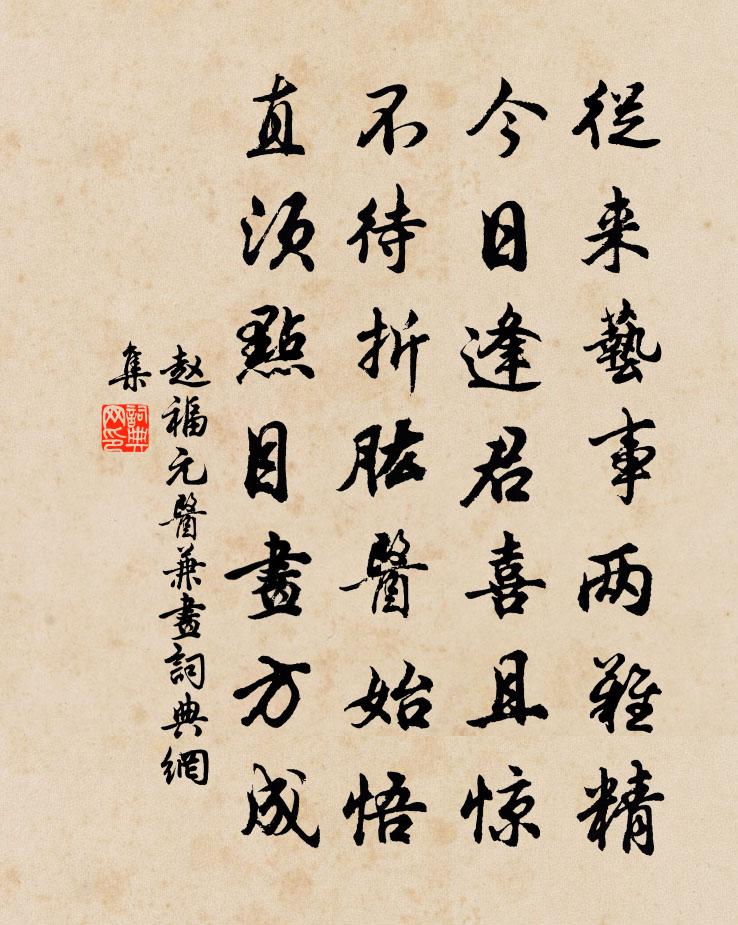 從来藝事两難精
今日逢君喜且惊
不待折肱醫始悟
直須點目畫方成
赵福元醫兼畫詞典網
集
詞典
网印